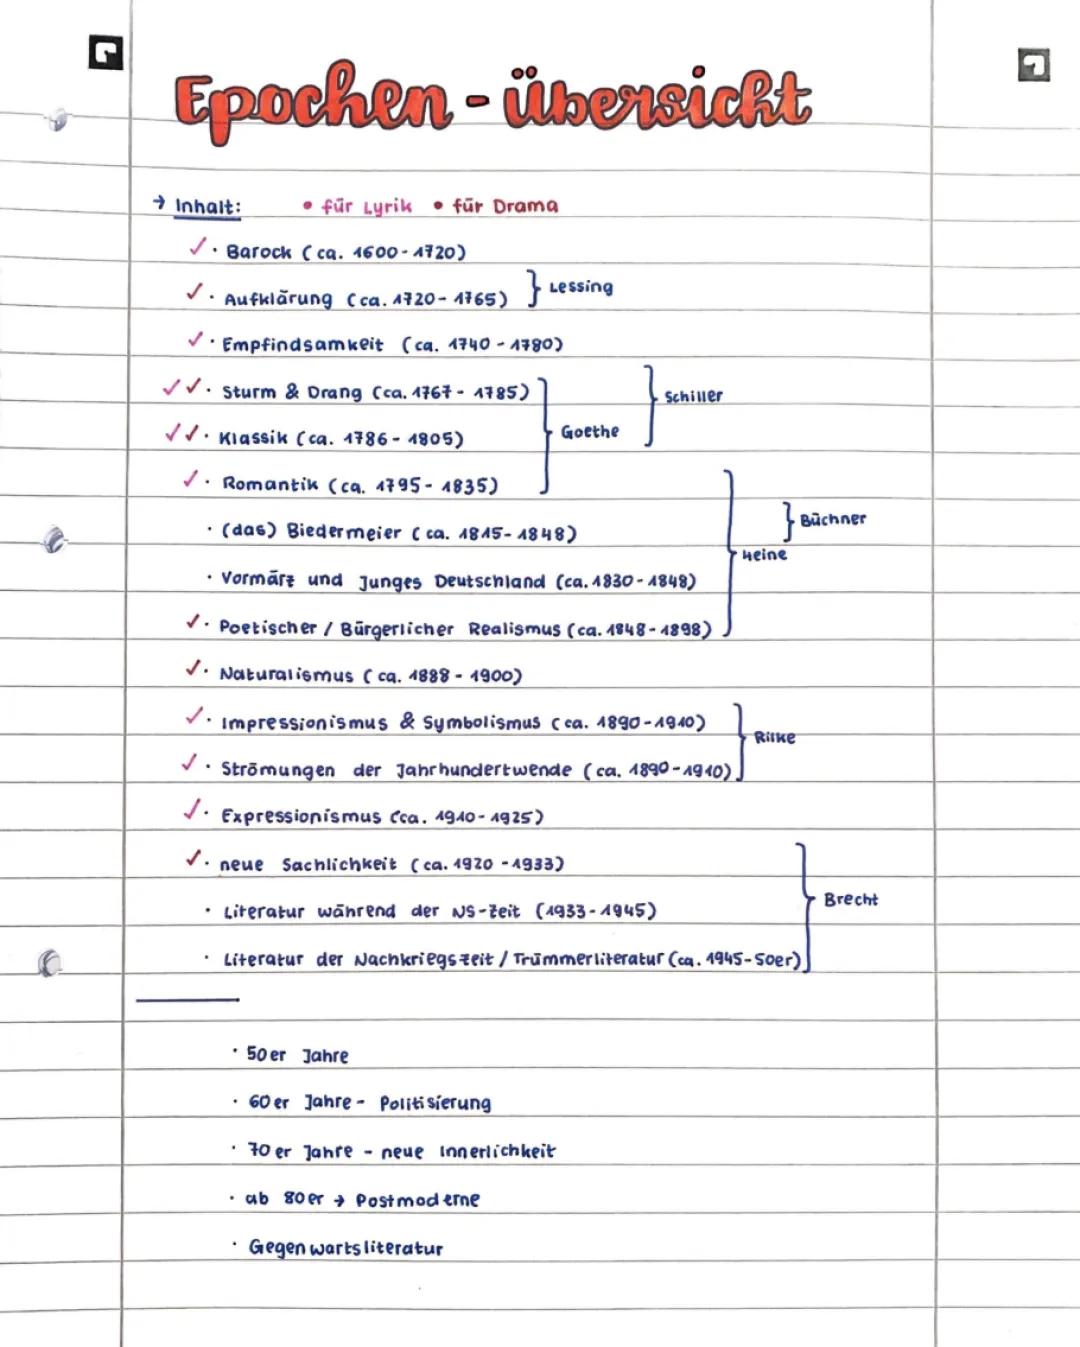 Epochen - übersicht
→ Inhalt: • für Lyrik • für Drama
✓ · Barock (ca. 1600 - 1720)
✓ · Aufklärung (ca. 1720 - 1765) } Lessing
✓ · Empfindsamkeit (ca. 1740 - 1780)
✓✓ · Sturm & Drang (ca. 1767 - 1785) Schiller
✓✓ · Klassik (ca. 1786 - 1805) Goethe
✓ · Romantik (ca. 1795 - 1835)
· (das) Biedermeier (ca. 1815 - 1848) } Büchner
Heine
· Vormärz und Junges Deutschland (ca. 1830 - 1848)
✓ · Poetischer / Bürgerlicher Realismus (ca. 1848 - 1898)
✓ · Naturalismus (ca. 1888 - 1900)
✓ · Impressionismus & Symbolismus (ca. 1890 - 1910)
Rilke
✓ · Strömungen der Jahrhundertwende (ca. 1890 - 1910)
✓ · Expressionismus (ca. 1910 - 1925)
✓ · neue Sachlichkeit (ca. 1920 - 1933)
· Literatur während der NS-Zeit (1933 - 1945) Brecht
· Literatur der Nachkriegszeit / Trümmerliteratur (ca. 1945 - 50er)
· 50er Jahre
· 60er Jahre - Politisierung
· 70er Jahre - neue Innerlichkeit
· ab 80er → Postmoderne
· Gegenwartsliteratur